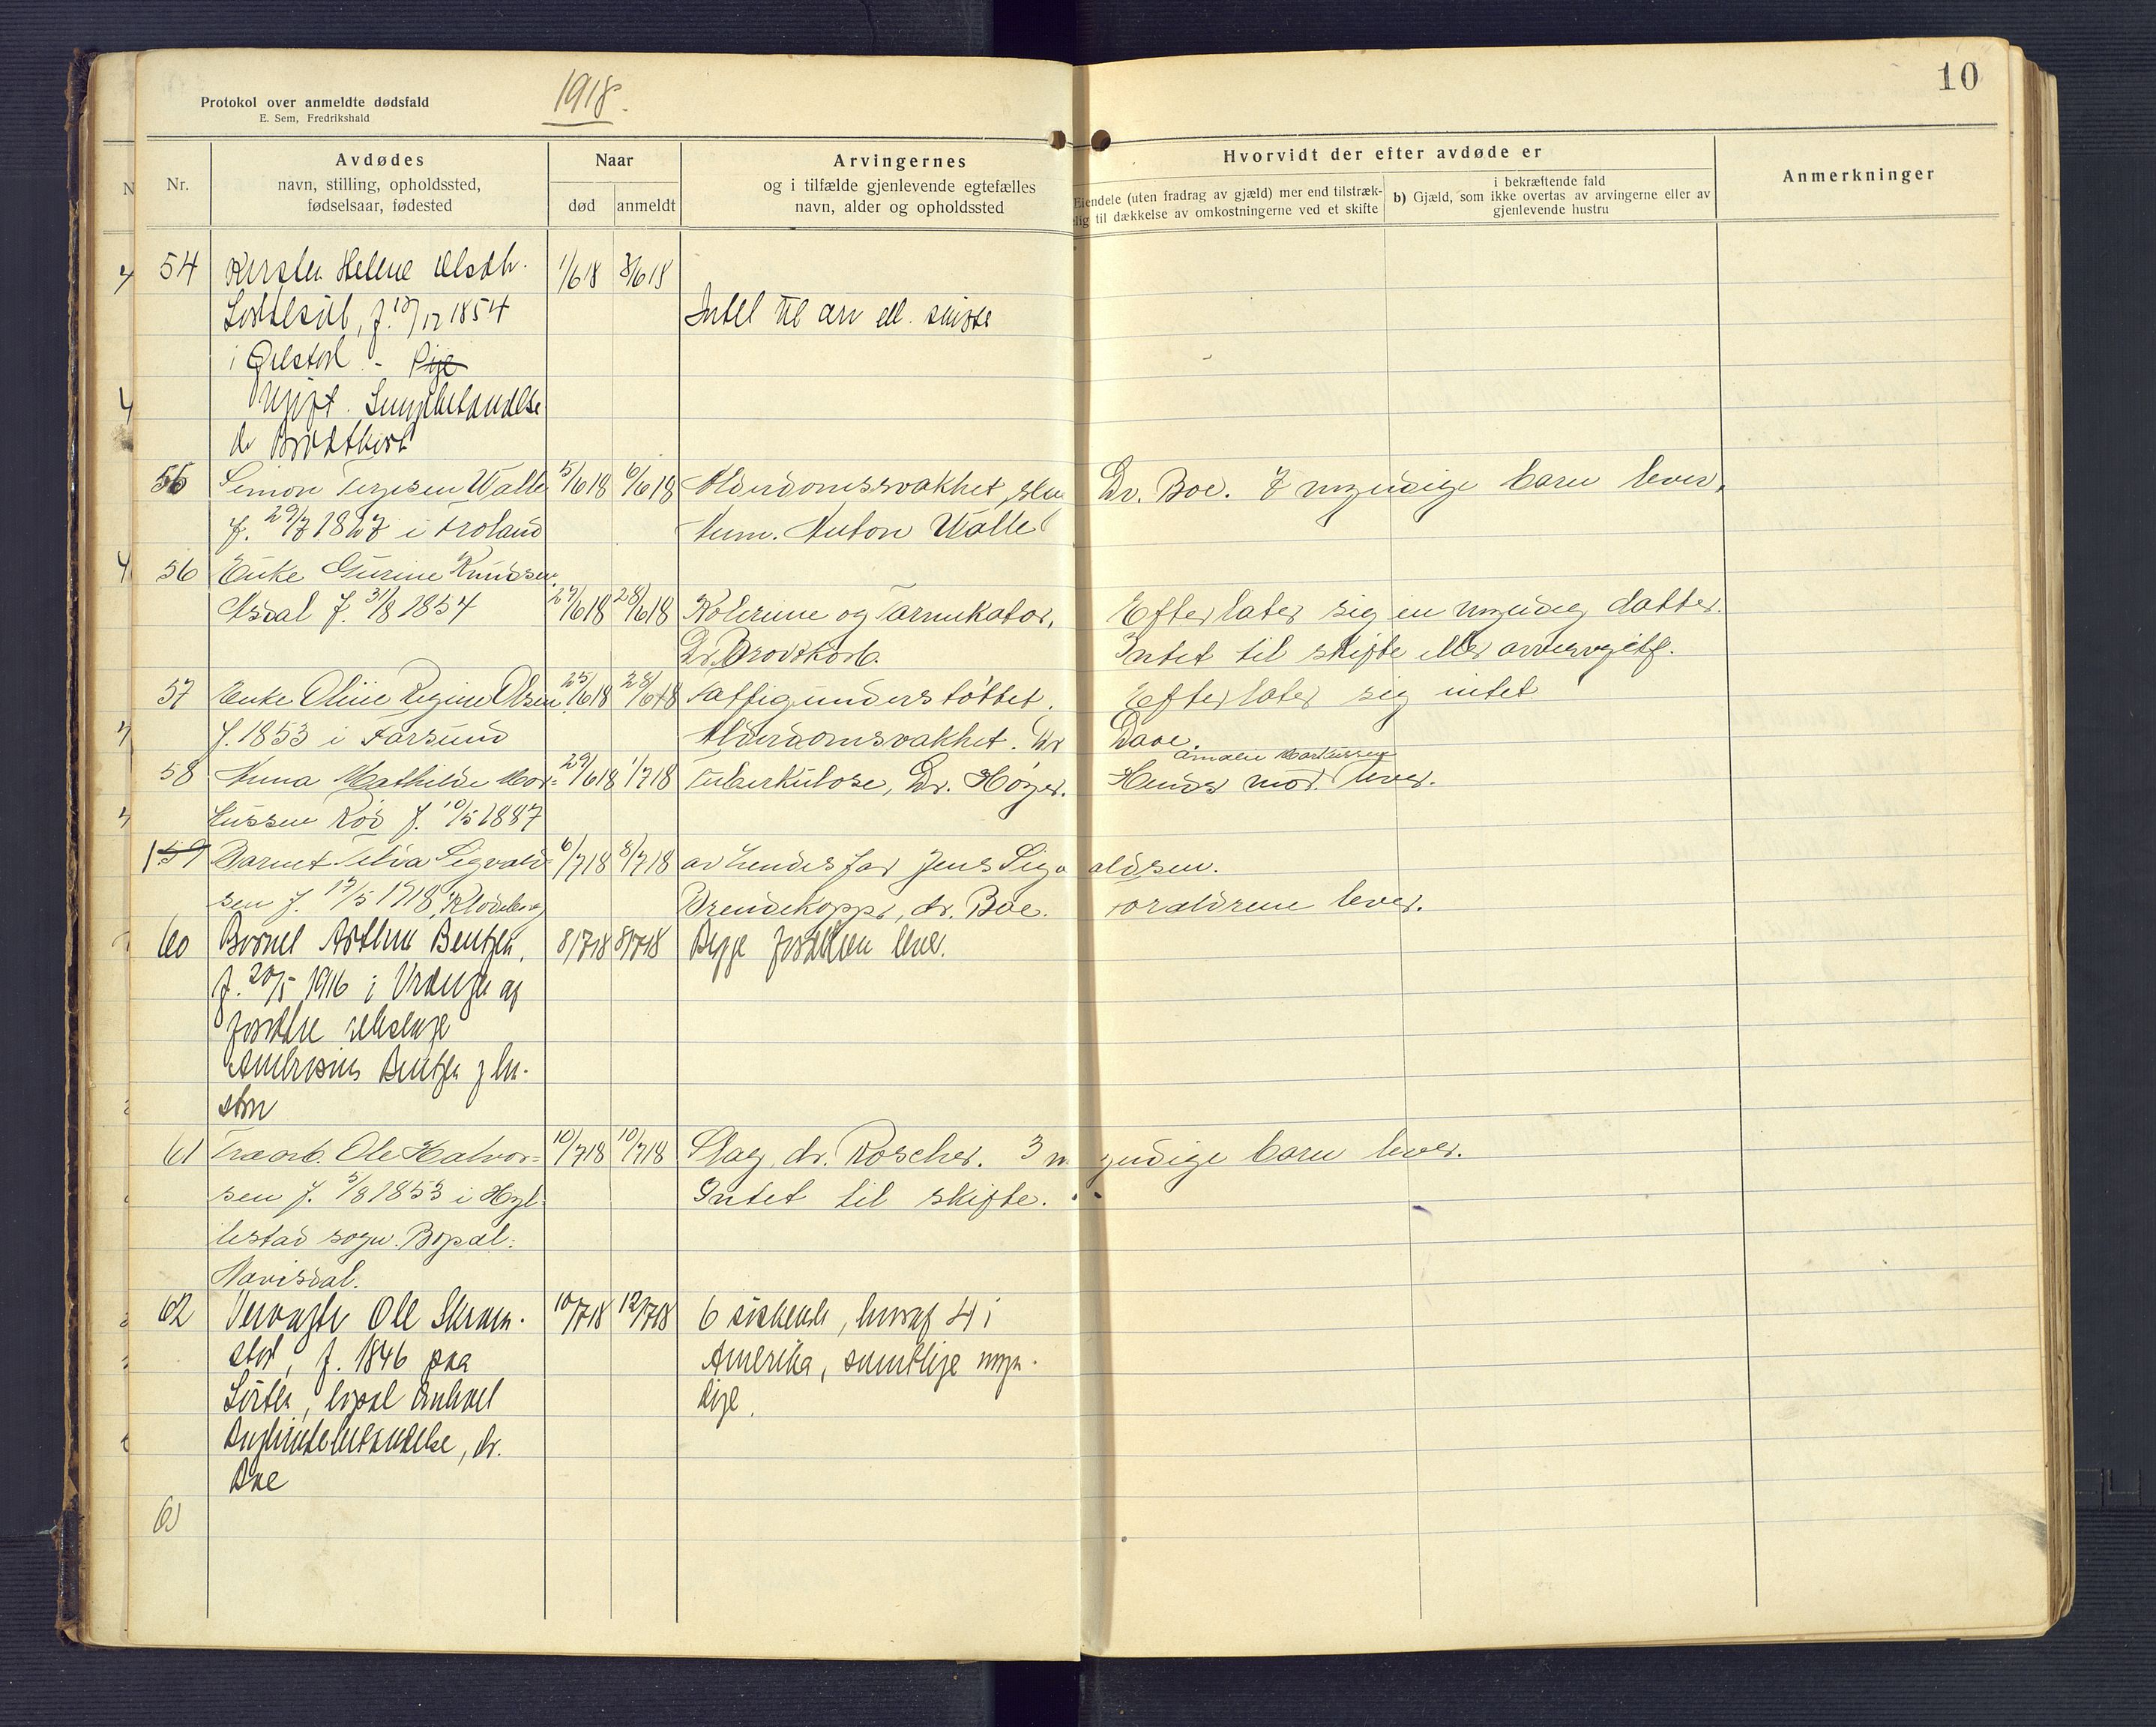 10
Protokol over anmeldte dødsfald
E. Sem, Fredrikshald
1918.
Nr.
Avdødes
navn, stilling, opholdssted,
fødselsaar, fødested
Naar
død
anmeldt
Arvingernes
og i tilfælde gjenlevende egtefælles
navn, alder og opholdssted
Hvorvidt der efter avdøde er
Eiendele (uten fradrag av gjæld) mer end tilstræk-
elig til dækkelse av omkostningerne ved et skifte
i bekræftende fald
b) Gjæld, som ikke overtas av arvingerne eller av
gjenlevende hustru
Anmerkninger
54 Kirsten Helene Olsdtr. 1/6 18 3/6 18
f. 1854 Intet til arv ell. skifte
i Øiestad - Pige
Ugift. Lungebetændelse
dr Brodtkorb
55 Simon Terjesen Walle 5/6 18 6/6 18 Alderdomssvakhet, Dr. Boe. 7 myndige barn lever.
f. 29/7 1827 i Froland Anm. Anton Walle
56 Enke Gurine Knudsen
Asdal f. 31/8 1854 27/6 18 28/6 18 Kolerine og Tarmkatar. Efterlater sig en myndig datter.
Dr. Brodtkorb. Intet til skifte eller arveavgift.
57 Enke Oline Regine Olsen 25/6 18 28/6 18 Fattigunderstøttet. Efterlater sig intet
f. 1853 i Farsund Alderdomsvakhet. Dr Daae.
Amalie Markussen
58 Anna Mathilde Mar- 29/6 18 1/7 18 Tuberkulose, Dr. Høyer. Hendes mor lever.
kussen Rød f. 10/5 1887
159 Barnet Silva Sigvald- 6/7 18 8/7 18 av hendes far Jens Sigvaldsen.
sen f. 17/5 1918, Klodeborg Brendekopper, dr. Boe. Forældrene lever.
60 Barnet Arthur Bentzen, 8/7 18 8/7 18 Begge forældren lever.
f. 20/5 1916 i Vrængen af
forældre
Ambrosius Bentzen g hu-
stru
61 Træarb. Ole Halvor- 10/7 18 10/7 18 Slag, dr. Roscher. 3 myndige barn lever.
sen f. 5/8 1853 i Hyl- Intet til skifte.
lestad sogn. Bopæl:
Navisdal.
62 Ole Skram- 10/7 18 12/7 18 6 søskende, hvoraf 4 i
stad, f. 1846 paa Amerika, samtlige myn-
bopæl dige.
Brysthindebetændelse, dr.
Boe
63